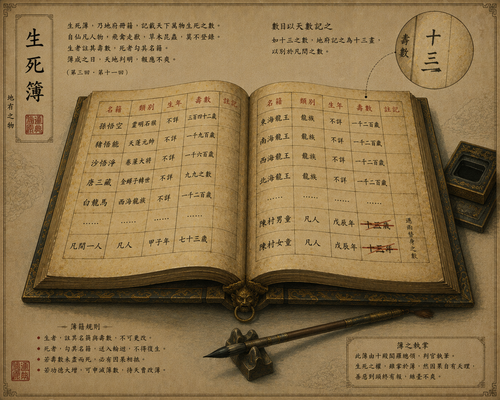 生死簿
地府之物
生死簿，乃地府冊籍，記載天下萬物生死之數。
自仙凡人物，飛禽走獸，草木昆蟲，莫不登錄。
生者註其壽數，死者勾其名籍。
簿成之日，天地判明，報應不爽。
（第三回，第十一回）
數目以天數記之
如十三之數，地府記之為十三畫，
以別於凡間之數。
壽數
十三
名籍 類別 生年 壽數 註記
孫悟空 靈明石猴 不詳 三百四十二歲
豬悟能 天蓬元帥 不詳 一千九百歲
沙悟淨 捲簾大將 不詳 一千六百歲
唐三藏 金蟬子轉世 不詳 九九之數
白龍馬 西海龍族 不詳 一千二百歲
…… …… …… ……
凡間一人 凡人 甲子年 七十三歲
名籍 類別 生年 壽數 註記
東海龍王 龍族 不詳 一千二百歲
南海龍王 龍族 不詳 一千二百歲
西海龍王 龍族 不詳 一千二百歲
北海龍王 龍族 不詳 一千二百歲
…… …… …… ……
陳村男童 凡人 戊辰年 十三歲
陳村女童 凡人 戊辰年 十三年
簿籍規則
生者，註其名籍與壽數，不可更改。
死者，勾其名籍，送入輪迴，不得復生。
若壽數未盡而死，必有因果糾纏。
若功德大增，可申減簿數，待天曹改簿。
簿之執掌
此簿由十殿閻羅總領，判官執筆。
生死之權，雖掌於簿，然因果自有天理，
善惡到頭終有報，絲毫不爽。